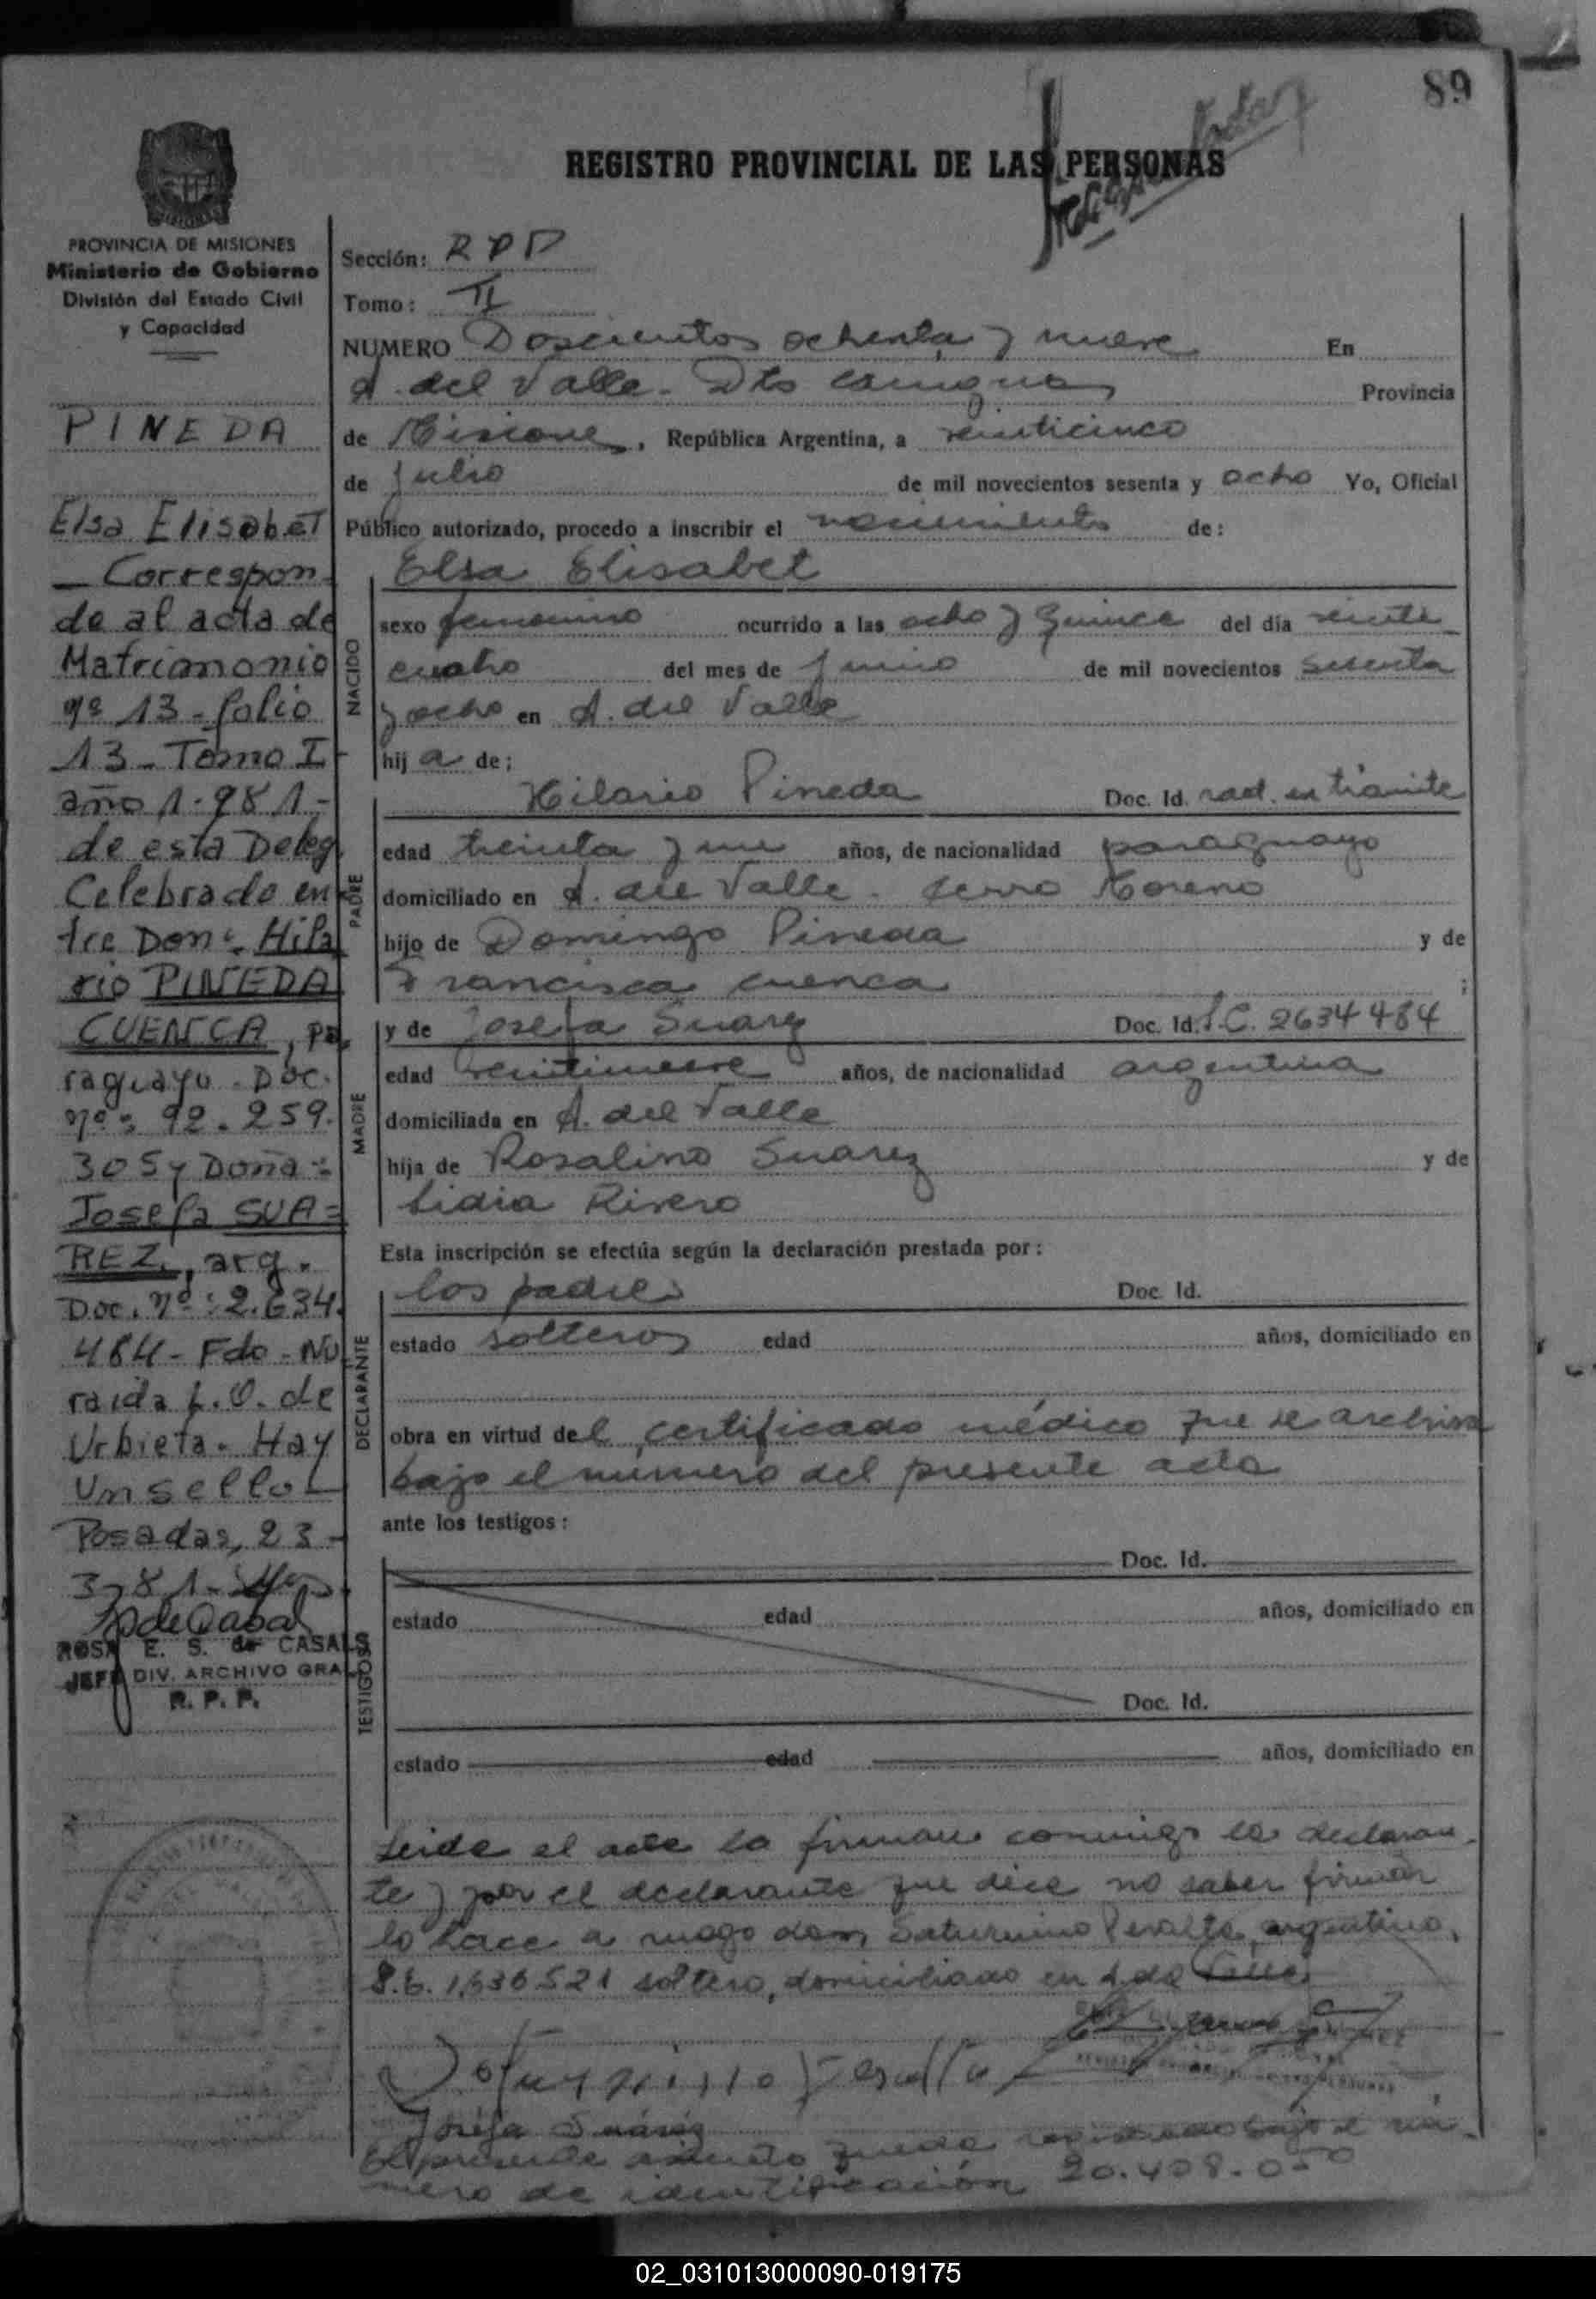 89
REGISTRO PROVINCIAL DE LAS PERSONAS
PROVINCIA DE MISIONES
Ministerio de Gobierno
División del Estado Civil
y Capacidad
PINEDA
Elsa Elisabet
- Correspon
de al acta de
Matrimonio
nº 13 - folio
13 - Tomo I
año 1.981 -
de esta Deleg.
Celebrado en
tre Don: Hila
rio PINEDA
CUENCA, pa
raguayo. Doc.
nº: 92.259.
305 y Doña:
Josefa SUA=
REZ, arg.
Doc. nº: 2.634.
484 - Fdo - No
raida L.O. de
Urbieta. Hay
un sello -
Posadas, 23 -
3-81 -
ROSA E. S. de CASALS
JEFE DIV. ARCHIVO GRAL
R. P. P.
Sección: RPP
Tomo: II
NUMERO Doscientos ochenta y nueve En
A. del Valle - Dto Cainguas Provincia
de Misiones, República Argentina, a veinticinco
de julio de mil novecientos sesenta y ocho Yo, Oficial
Público autorizado, procedo a inscribir el nacimiento de:
NACIDO
Elsa Elisabet
sexo femenino ocurrido a las ocho y quince del día veinte
cuatro del mes de junio de mil novecientos sesenta
y ocho en A. del Valle
hija de:
PADRE
Hilario Pineda Doc. Id. rad. en trámite
edad treinta y un años, de nacionalidad paraguayo
domiciliado en A. del Valle - Cerro Moreno
hijo de Domingo Pineda y de
Francisca Cuenca ;
MADRE
y de Josefa Suarez Doc. Id. L.C. 2634484
edad veintinueve años, de nacionalidad argentina
domiciliada en A. del Valle
hija de Rosalino Suarez y de
Lidia Rivero
Esta inscripción se efectúa según la declaración prestada por:
DECLARANTE
los padres Doc. Id.
estado solteros edad años, domiciliado en
obra en virtud del certificado médico que se archiva
bajo el número del presente acta
ante los testigos:
TESTIGOS
Doc. Id.
estado edad años, domiciliado en
Doc. Id.
estado edad años, domiciliado en
Leida el acta la firman conmigo la declaran-
te y por el declarante que dice no saber firmar
lo hace a ruego don Saturnino Peralta, argentino,
1.636.521 soltero, domiciliado en A. del Valle
Saturnino Peralta
Josefa Suárez
El presente asiento queda registrado bajo el nú-
mero de identificación 20.408.0
02_031013000090-019175